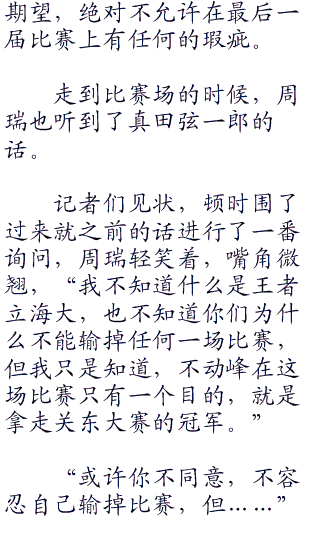 期望，绝对不允许在最后一
届比赛上有任何的瑕疵。
走到比赛场的时候，周
瑞也听到了真田弦一郎的
话。
记者们见状，顿时围了
过来就之前的话进行了一番
询问，周瑞轻笑着，嘴角微
翘，“我不知道什么是王者
立海大，也不知道你们为什
么不能输掉任何一场比赛，
但我只是知道，不动峰在这
场比赛只有一个目的，就是
拿走关东大赛的冠军。”
“或许你不同意，不容
忍自己输掉比赛，但……”